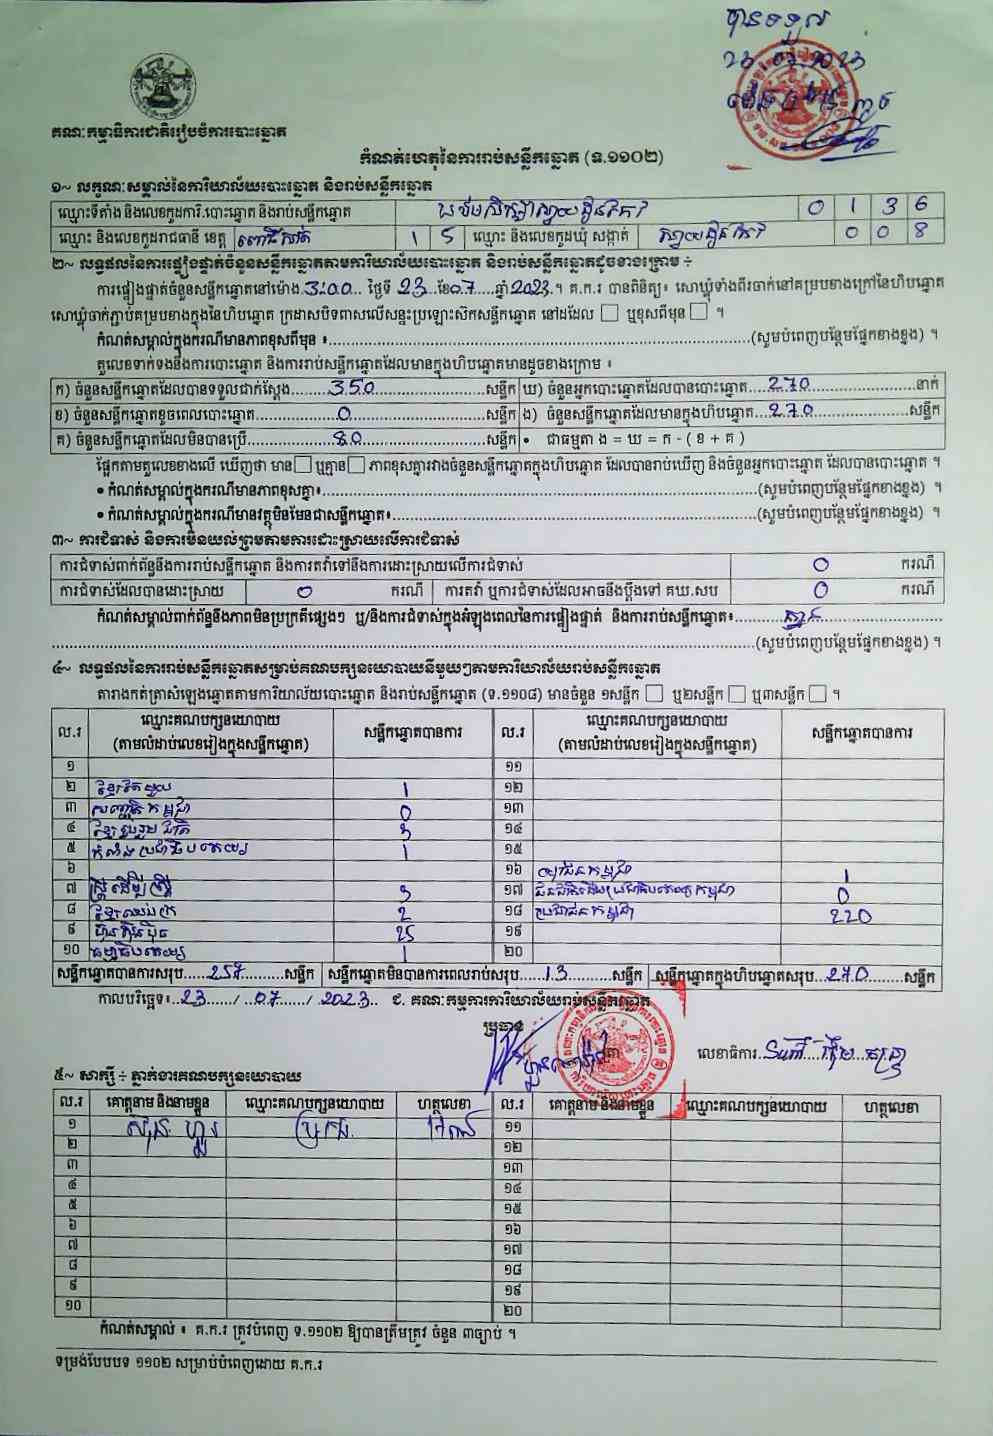 បានទទួល
គណៈកម្មាធិការជាតិរៀបចំការបោះឆ្នោត
កំណត់ហេតុនៃការរាប់សន្លឹកឆ្នោត (ទ.១១០២)
១~ លក្ខណៈសម្គាល់នៃការិយាល័យបោះឆ្នោត និងរាប់សន្លឹកឆ្នោត
ឈ្មោះទីតាំង និងលេខកូដការិ.បោះឆ្នោត និងរាប់សន្លឹកឆ្នោត 0 1 3 6
ឈ្មោះ និងលេខកូដរាជធានី ខេត្ត ពោធិ៍សាត់ 1 5 ឈ្មោះ និងលេខកូដឃុំ សង្កាត់ ស្វាយដូនកែវ 0 0 8
២~ លទ្ធផលនៃការផ្ទៀងផ្ទាត់ចំនួនសន្លឹកឆ្នោតតាមការិយាល័យបោះឆ្នោត និងរាប់សន្លឹកឆ្នោតដូចខាងក្រោម ÷
ការផ្ទៀងផ្ទាត់ចំនួនសន្លឹកឆ្នោតនៅម៉ោង 3:00 ថ្ងៃទី 23 ខែ 07 ឆ្នាំ 2023 ។ គ.ក.រ បានពិនិត្យ៖ សោឃ្លុំទាំងពីរចាក់នៅគម្របខាងក្រៅនៃហិបឆ្នោត
សោឃ្លុំចាក់ភ្ជាប់គម្របខាងក្នុងនៃហិបឆ្នោត ក្រដាសបិទពាសលើសន្ទះប្រឡោះស៊កសន្លឹកឆ្នោត នៅដដែល ☐ ឬខុសពីមុន ☐ ។
កំណត់សម្គាល់ក្នុងករណីមានភាពខុសពីមុន ៖ (សូមបំពេញបន្ថែមផ្នែកខាងខ្នង) ។
តួលេខទាក់ទងនឹងការបោះឆ្នោត និងការរាប់សន្លឹកឆ្នោតដែលមានក្នុងហិបឆ្នោតមានដូចខាងក្រោម ៖
ក) ចំនួនសន្លឹកឆ្នោតដែលបានទទួលជាក់ស្តែង 350 សន្លឹក ឃ) ចំនួនអ្នកបោះឆ្នោតដែលបានបោះឆ្នោត 270 នាក់
ខ) ចំនួនសន្លឹកឆ្នោតខូចពេលបោះឆ្នោត 0 សន្លឹក ង) ចំនួនសន្លឹកឆ្នោតដែលមានក្នុងហិបឆ្នោត 270 សន្លឹក
គ) ចំនួនសន្លឹកឆ្នោតដែលមិនបានប្រើ 80 សន្លឹក • ជាធម្មតា ង = ឃ = ក - ( ខ + គ )
ផ្អែកតាមតួលេខខាងលើ ឃើញថា មាន ☐ ឬគ្មាន ☐ ភាពខុសគ្នារវាងចំនួនសន្លឹកឆ្នោតក្នុងហិបឆ្នោត ដែលបានរាប់ឃើញ និងចំនួនអ្នកបោះឆ្នោត ដែលបានបោះឆ្នោត ។
• កំណត់សម្គាល់ក្នុងករណីមានភាពខុសគ្នា៖ (សូមបំពេញបន្ថែមផ្នែកខាងខ្នង) ។
• កំណត់សម្គាល់ក្នុងករណីមានវត្ថុមិនមែនជាសន្លឹកឆ្នោត៖ (សូមបំពេញបន្ថែមផ្នែកខាងខ្នង) ។
៣~ ការជំទាស់ និងការមិនយល់ព្រមតាមការដោះស្រាយលើការជំទាស់
ការជំទាស់ពាក់ព័ន្ធនឹងការរាប់សន្លឹកឆ្នោត និងការតវ៉ាទៅនឹងការដោះស្រាយលើការជំទាស់ 0 ករណី
ការជំទាស់ដែលបានដោះស្រាយ 0 ករណី ការតវ៉ា ឬការជំទាស់ដែលអាចនឹងប្តឹងទៅ គឃ.សប 0 ករណី
កំណត់សម្គាល់ពាក់ព័ន្ធនឹងភាពមិនប្រក្រតីផ្សេងៗ ឬ/និងការជំទាស់ក្នុងអំឡុងពេលនៃការផ្ទៀងផ្ទាត់ និងការរាប់សន្លឹកឆ្នោត៖ គ្មាន
(សូមបំពេញបន្ថែមផ្នែកខាងខ្នង) ។
៤~ លទ្ធផលនៃការរាប់សន្លឹកឆ្នោតសម្រាប់គណបក្សនយោបាយនីមួយៗតាមការិយាល័យរាប់សន្លឹកឆ្នោត
តារាងកត់ត្រាសំឡេងឆ្នោតតាមការិយាល័យបោះឆ្នោត និងរាប់សន្លឹកឆ្នោត (ទ.១១០៨) មានចំនួន ១សន្លឹក ☐ ឬ២សន្លឹក ☐ ឬ៣សន្លឹក ☐ ។
ល.រ ឈ្មោះគណបក្សនយោបាយ (តាមលំដាប់លេខរៀងក្នុងសន្លឹកឆ្នោត) សន្លឹកឆ្នោតបានការ ល.រ ឈ្មោះគណបក្សនយោបាយ (តាមលំដាប់លេខរៀងក្នុងសន្លឹកឆ្នោត) សន្លឹកឆ្នោតបានការ
១ ១១
២ ខ្មែរតែមួយ 1 ១២
៣ សញ្ជាតិកម្ពុជា 0 ១៣
៤ ខ្មែររួបរួមជាតិ 3 ១៤
៥ កំលាំងប្រជាធិបតេយ្យ 1 ១៥
៦ ១៦ យុវជនកម្ពុជា 1
៧ ស្ត្រីដើម្បីស្ត្រី 3 ១៧ ជនជាតិដើមប្រជាធិបតេយ្យកម្ពុជា 0
៨ ខ្មែរឈប់ក្រ 2 ១៨ ប្រជាជនកម្ពុជា 220
៩ ហ៊្វុនស៊ិនប៉ិច 25 ១៩
១០ ធម្មាធិបតេយ្យ 1 ២០
សន្លឹកឆ្នោតបានការសរុប 257 សន្លឹក សន្លឹកឆ្នោតមិនបានការពេលរាប់សរុប 13 សន្លឹក សន្លឹកឆ្នោតក្នុងហិបឆ្នោតសរុប 270 សន្លឹក
កាលបរិច្ឆេទ៖ 23 / 07 / 2023 ជ. គណៈកម្មការការិយាល័យរាប់សន្លឹកឆ្នោត
ប្រធាន
លេខាធិការ
៥~ សាក្សី ÷ ភ្នាក់ងារគណបក្សនយោបាយ
ល.រ គោត្តនាម និងនាមខ្លួន ឈ្មោះគណបក្សនយោបាយ ហត្ថលេខា ល.រ គោត្តនាម និងនាមខ្លួន ឈ្មោះគណបក្សនយោបាយ ហត្ថលេខា
១ ១១
២ ១២
៣ ១៣
៤ ១៤
៥ ១៥
៦ ១៦
៧ ១៧
៨ ១៨
៩ ១៩
១០ ២០
កំណត់សម្គាល់ ៖ គ.ក.រ ត្រូវបំពេញ ទ.១១០២ ឱ្យបានត្រឹមត្រូវ ចំនួន ៣ច្បាប់ ។
ទម្រង់បែបបទ ១១០២ សម្រាប់បំពេញដោយ គ.ក.រ